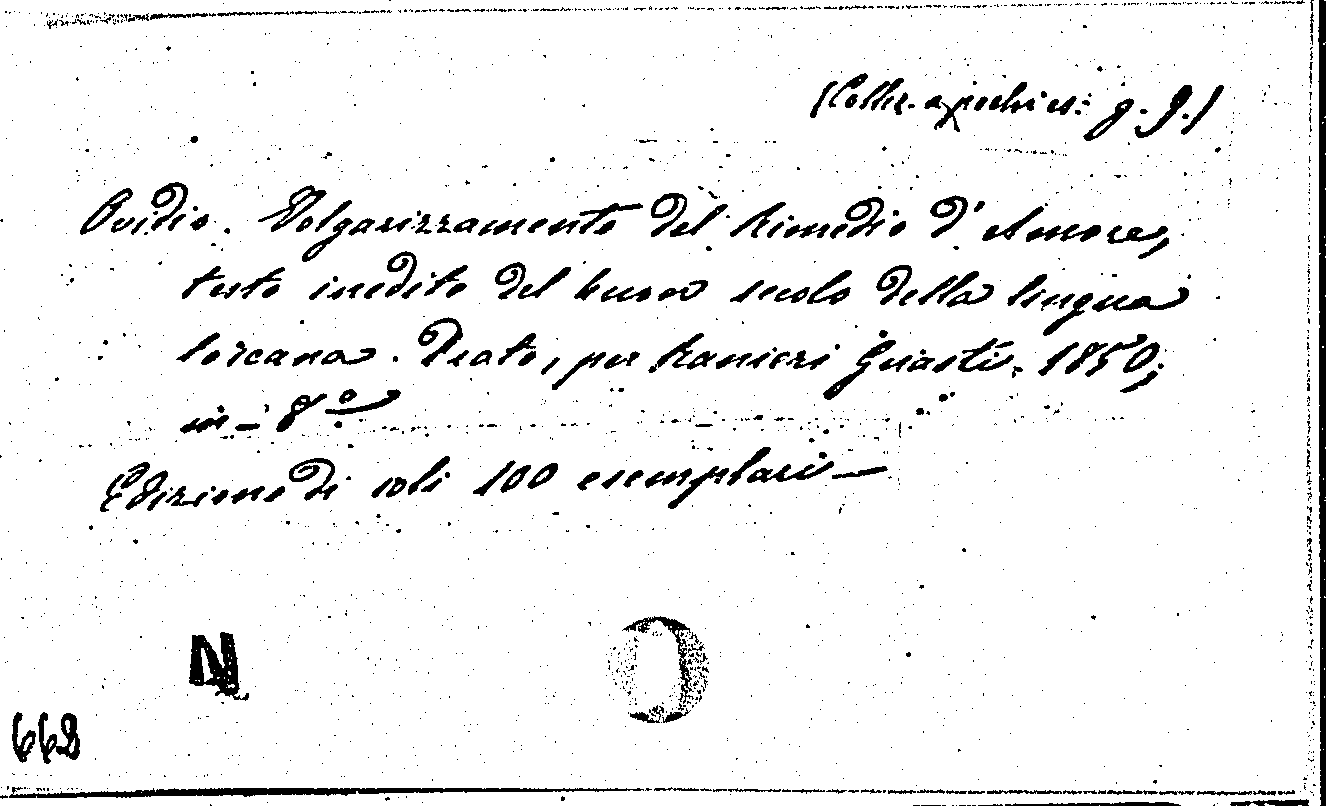 (Collez. a pochi es: g. g.)
Ovidio. Volgarizzamento del Rimedio d'Amore,
testo inedito del buon secolo della lingua
toscana. Prato, per Ranieri Guasti. 1850;
in-8º
Edizione di soli 100 esemplari—
N
668